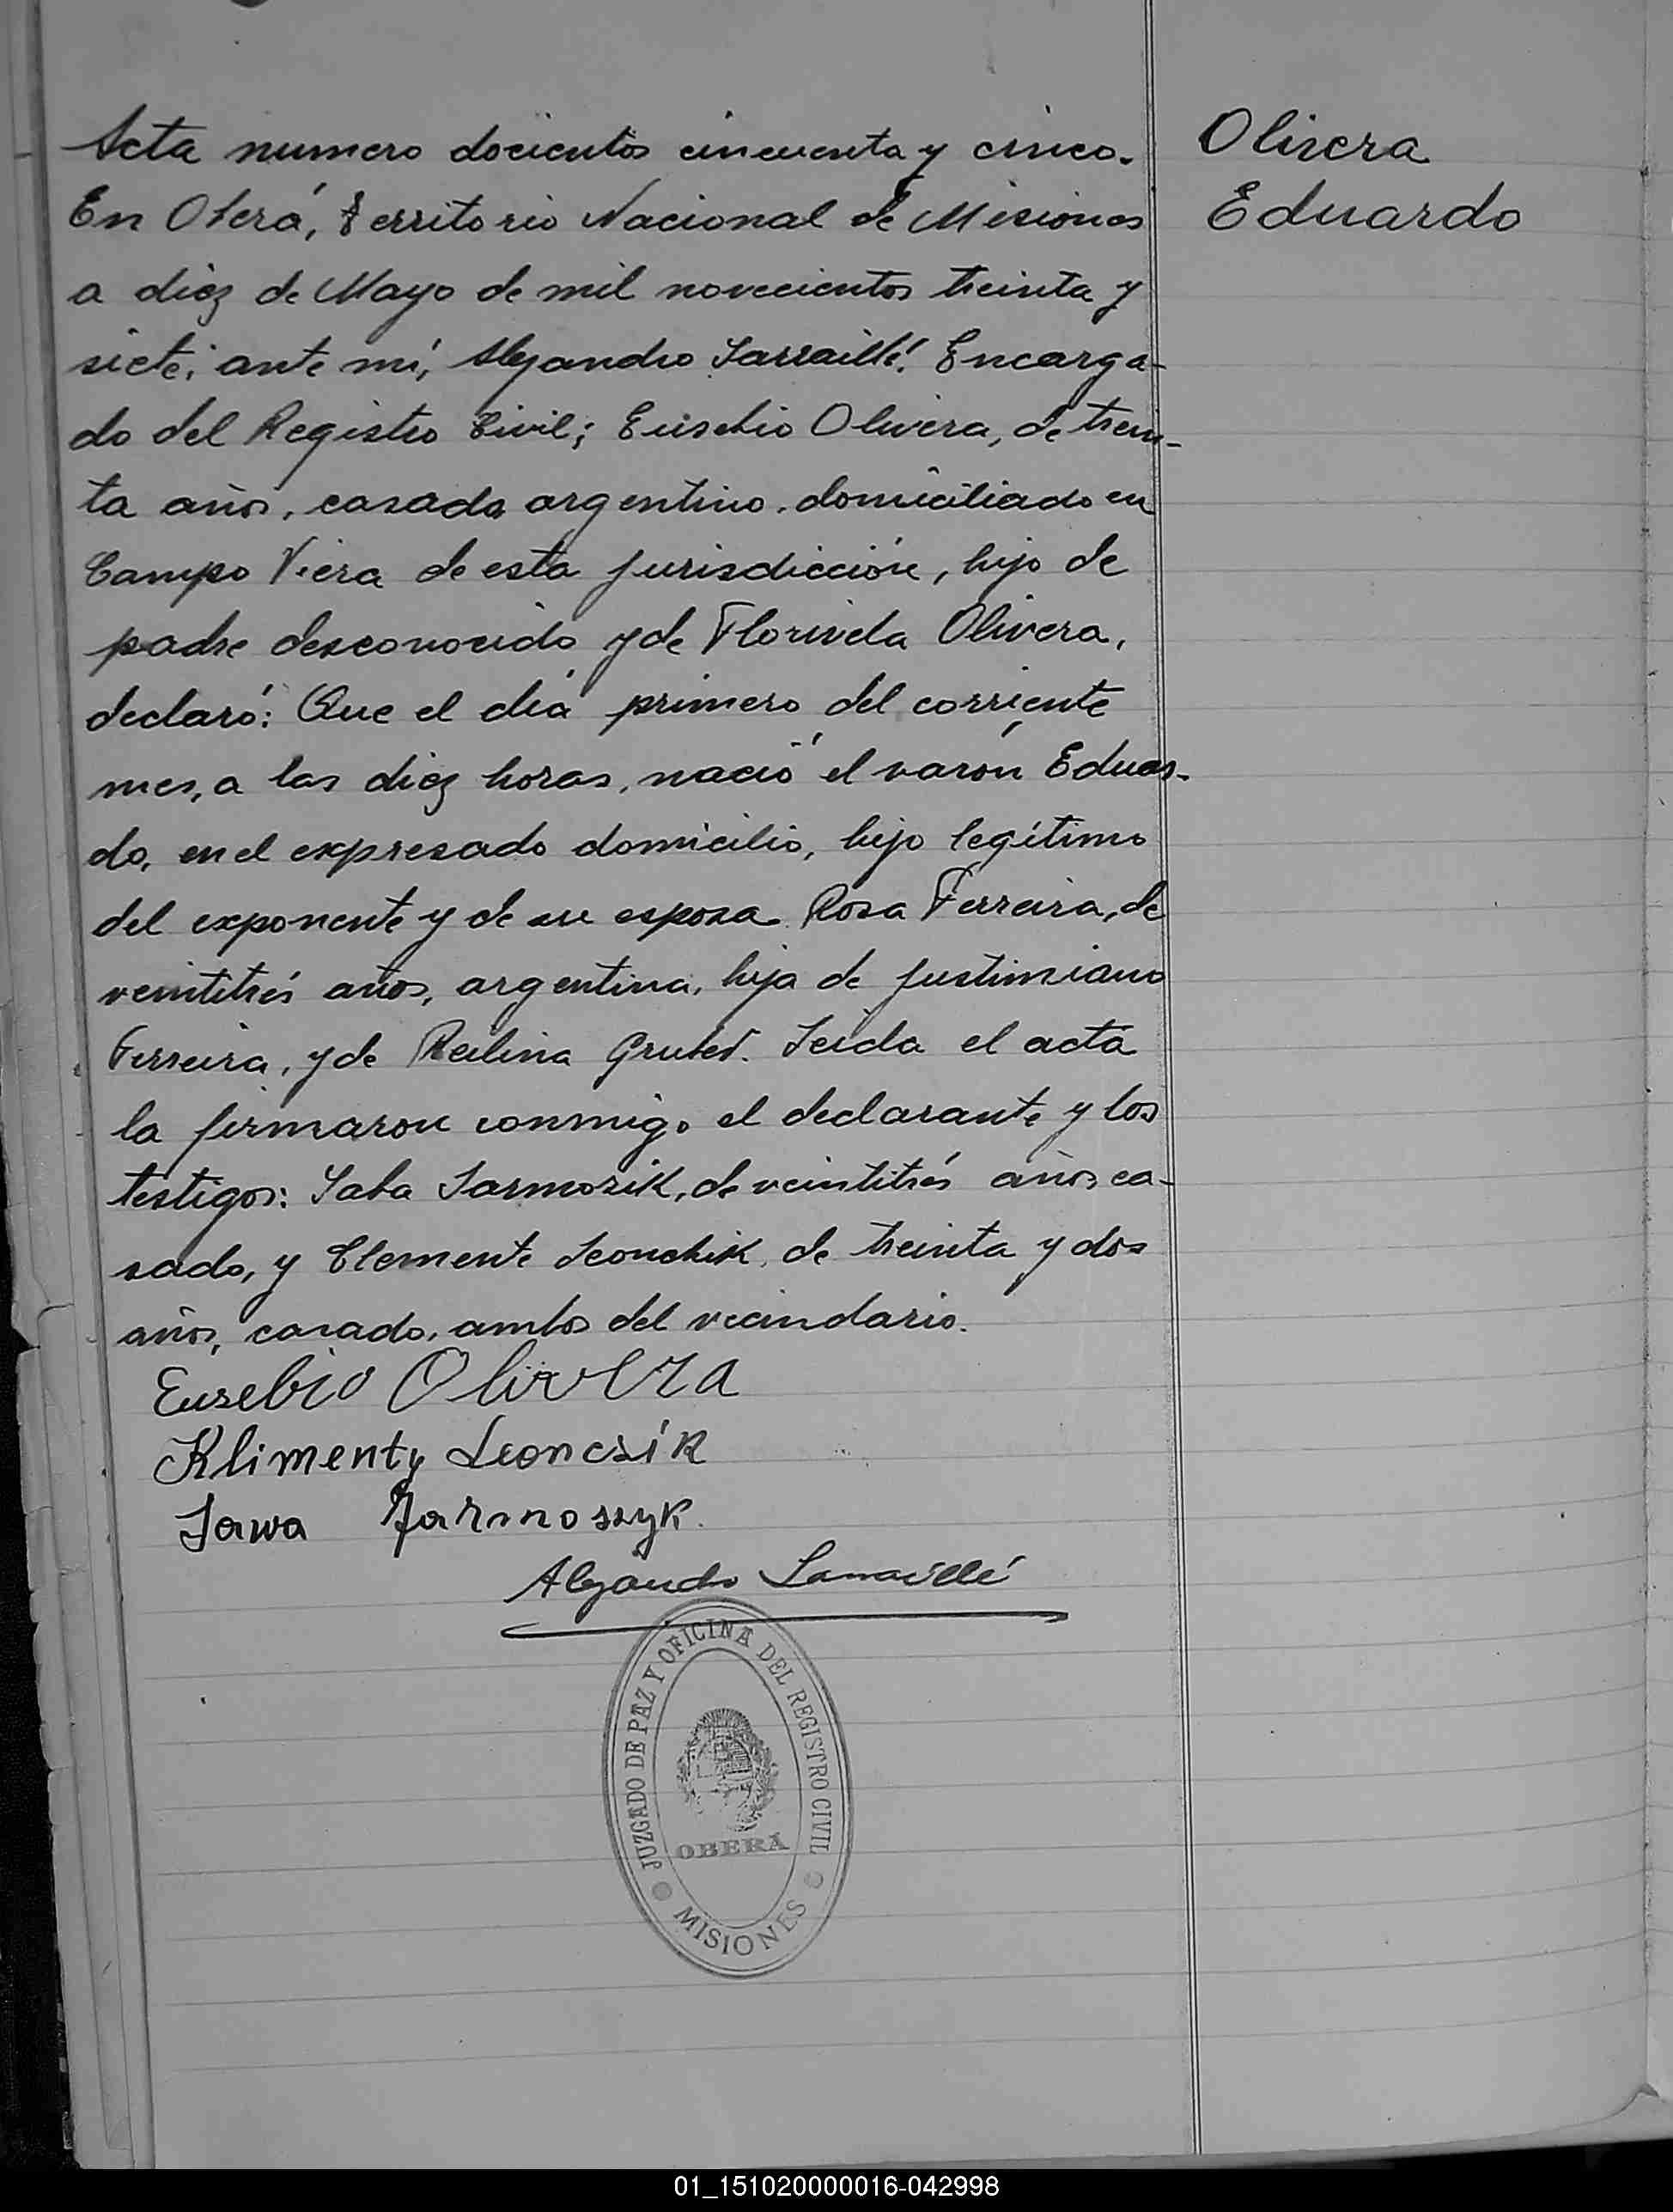 Acta numero docientos cincuenta y cinco.
En Oberá, territorio Nacional de Misiones
a diez de Mayo de mil novecientos treinta y
siete; ante mí, Alejandro Larraillé, Encarga-
do del Registro Civil; Eusebio Olivera, de trein-
ta años, casado, argentino, domiciliado en
Campo Viera de esta jurisdicción, hijo de
padre desconocido y de Florivela Olivera,
declaró: Que el día primero del corriente
mes, a las diez horas, nació el varón Eduar-
do, en el expresado domicilio, hijo legítimo
del exponente y de su esposa Rosa Ferreira, de
veintitrés años, argentina, hija de Justimiano
Ferreira, y de Reilina Gruber. Leida el acta
la firmaron conmigo el declarante y los
testigos: Saba Jarmozik, de veintitrés años, ca-
sado, y Clemente Leonchik, de treinta y dos
años, casado, ambos del vecindario.
Eusebio Olivera
Klimenty Leoncsik
Sawa Jarmoszyk.
Alejandro Larraillé
JUZGADO DE PAZ Y OFICINA DEL REGISTRO CIVIL
OBERÁ
MISIONES
Olivera
Eduardo
01_151020000016-042998